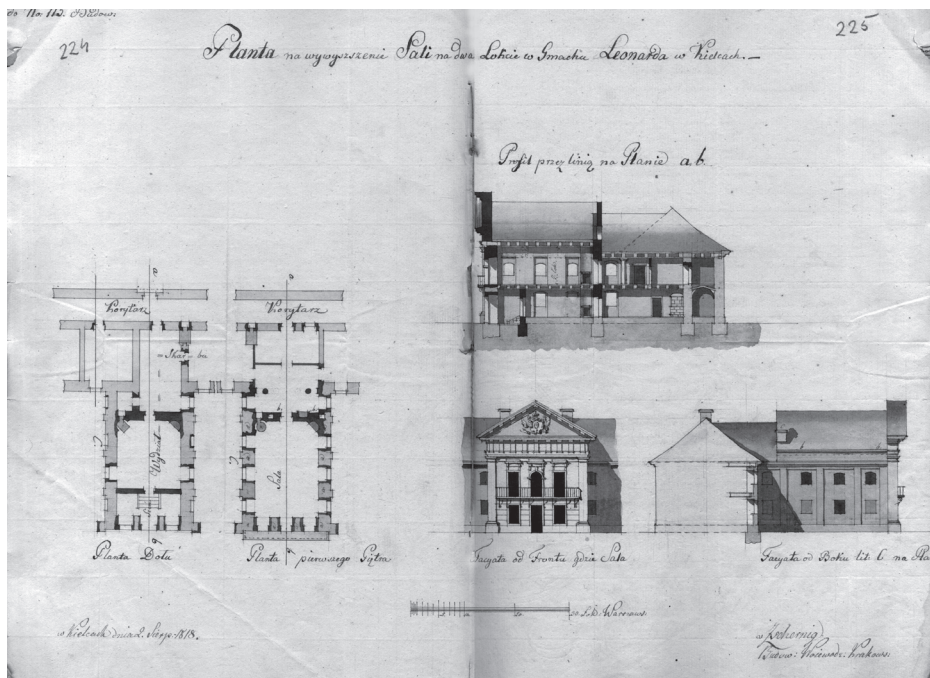 do No. 112. Budow:
224
225
Planta na wywyszszenie Sali na dwa Łokcie w Gmachu Leonarda w Kielcach.—
Profil przez linią na Planie a b.
Korytarz
Korytarz
Skar-bu
Wydział
Sala
Planta Dołu
Planta pierwszego Piętra
Facyata od Frontu gdzie Sala
Facyata od Boku lit: C na Pla
50 Łok: Warszaws:
w Kielcach dnia 2. Sierp: 1818.
Budow: Woiewodz: Krakows: